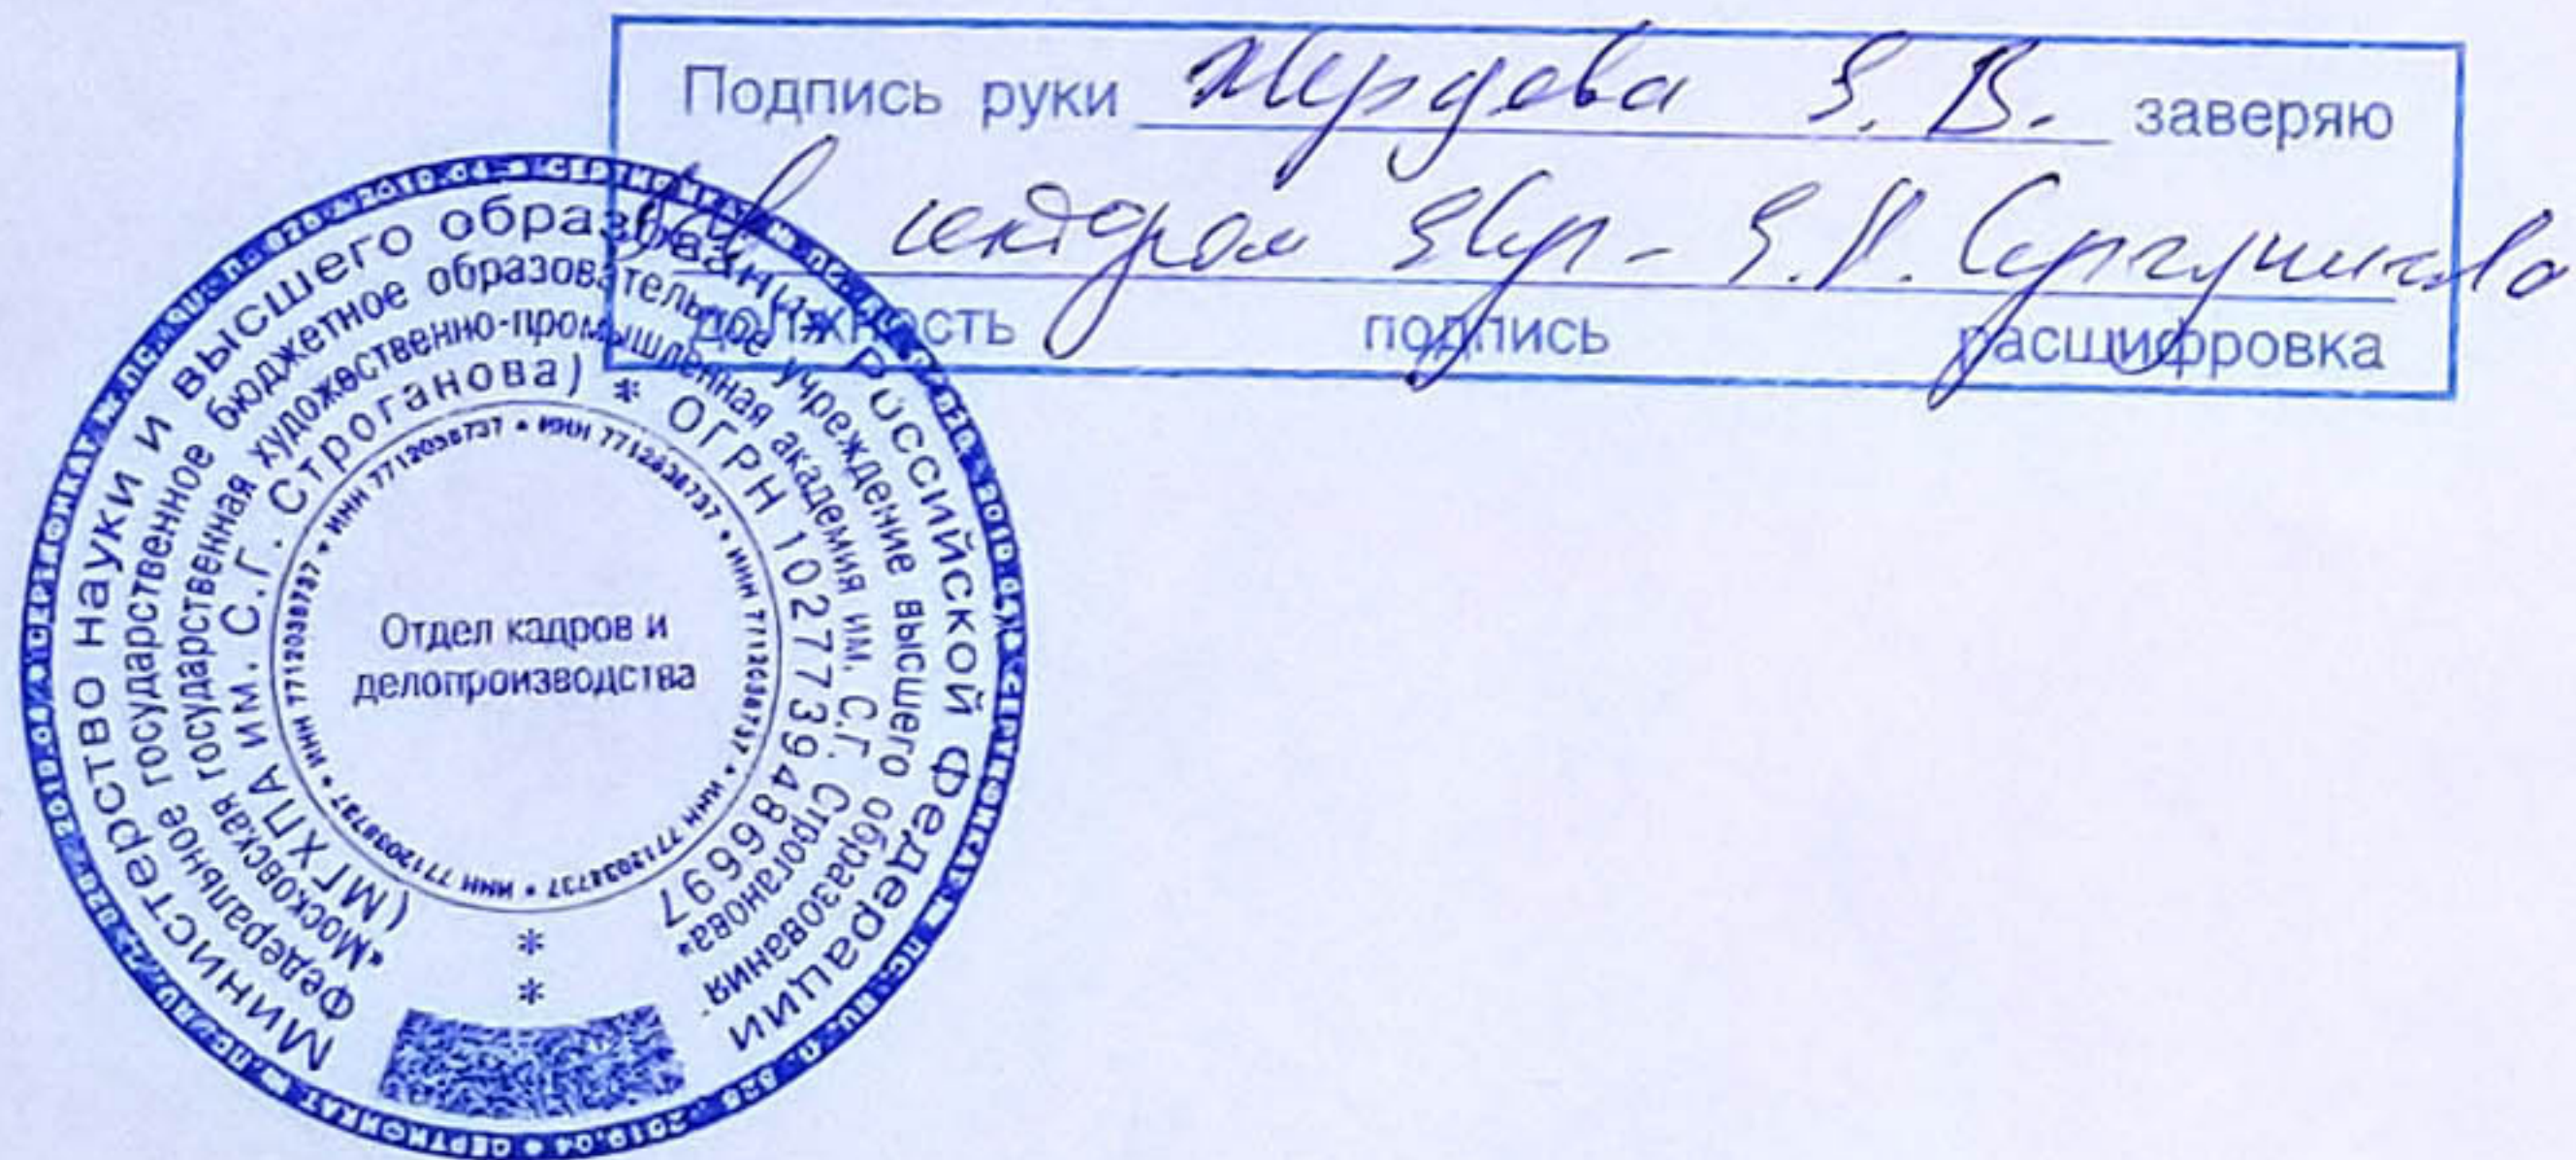 Подпись руки Жердева Е. В. заверяю
Зав сектором
должность подпись расшифровка
Министерство науки и высшего образования Российской Федерации
Федеральное государственное бюджетное образовательное учреждение высшего образования
«Московская государственная художественно-промышленная академия им. С.Г. Строганова»
(МГХПА им. С.Г. Строганова) * ОГРН 1027739486697
ИНН 7712038737 * ИНН 7712038737 * ИНН 7712038737 * ИНН 7712038737 * ИНН 7712038737 * ИНН 7712038737 * ИНН 7712038737
Отдел кадров и
делопроизводства
*
*